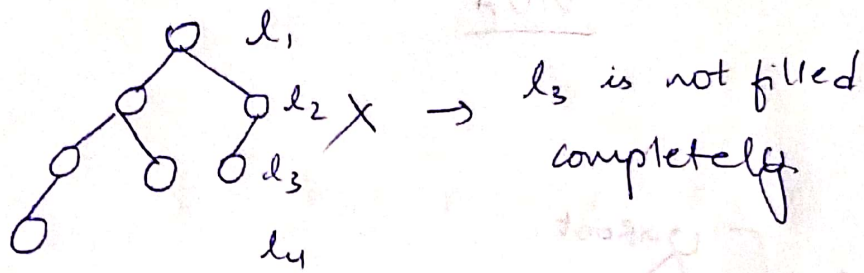 l₁
l₂ X → l₃ is not filled
completely
l₃
l₄